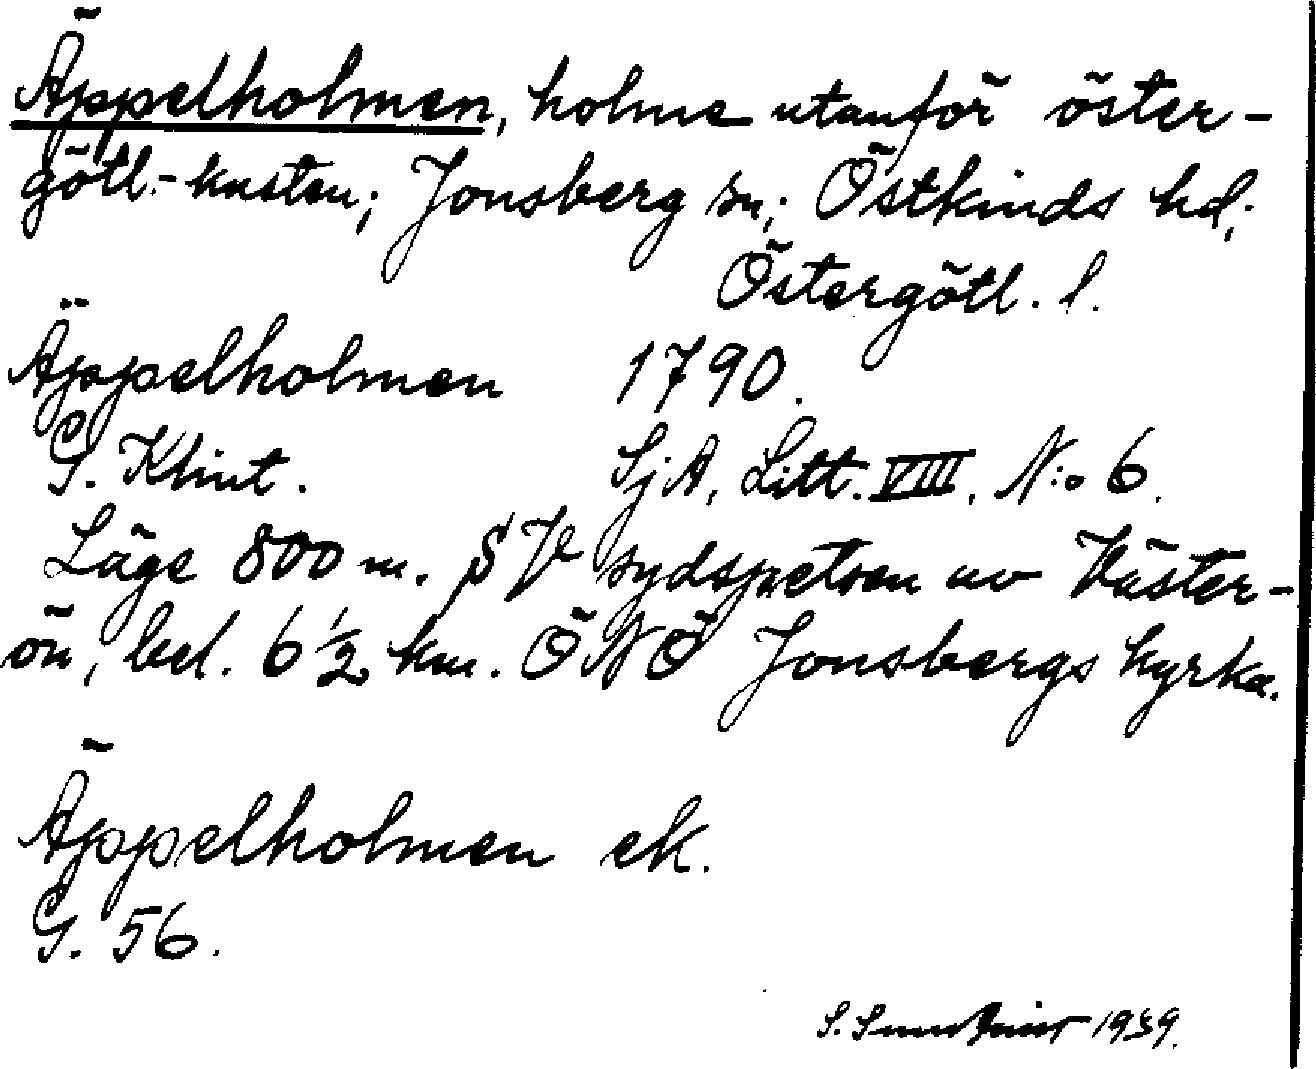 Äppelholmen, holme utanför öster-
götl.-kusten; Jonsberg sn; Östkinds hd;
Östergötl. l.
Äppelholmen 1790.
G. Klint. SjA, Litt. VIII, N:o 6.
Läge 800 m. SV sydspetsen av Väster-
ön, bel. 6 1/2 km. ÖNÖ Jonsbergs kyrka.
Äppelholmen ek.
G. 56.
S. 1939.